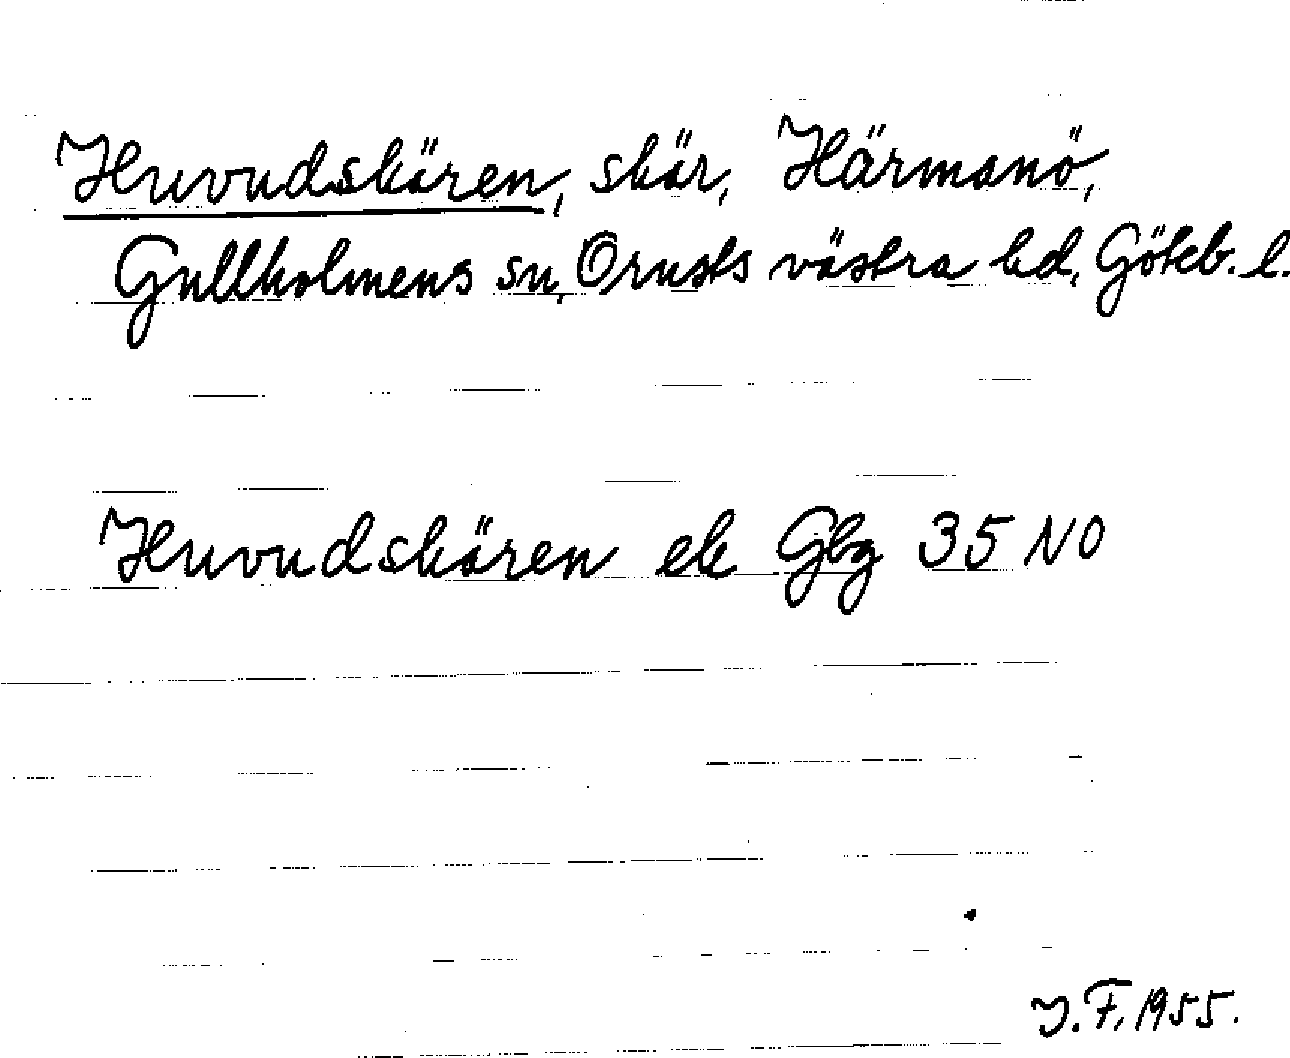 Huvudskären, skär, Härmanö,
Gullholmens sn, Orusts västra hd, Göteb. l.
Huvudskären ek Gbg 35 NO
J. F. 1955.